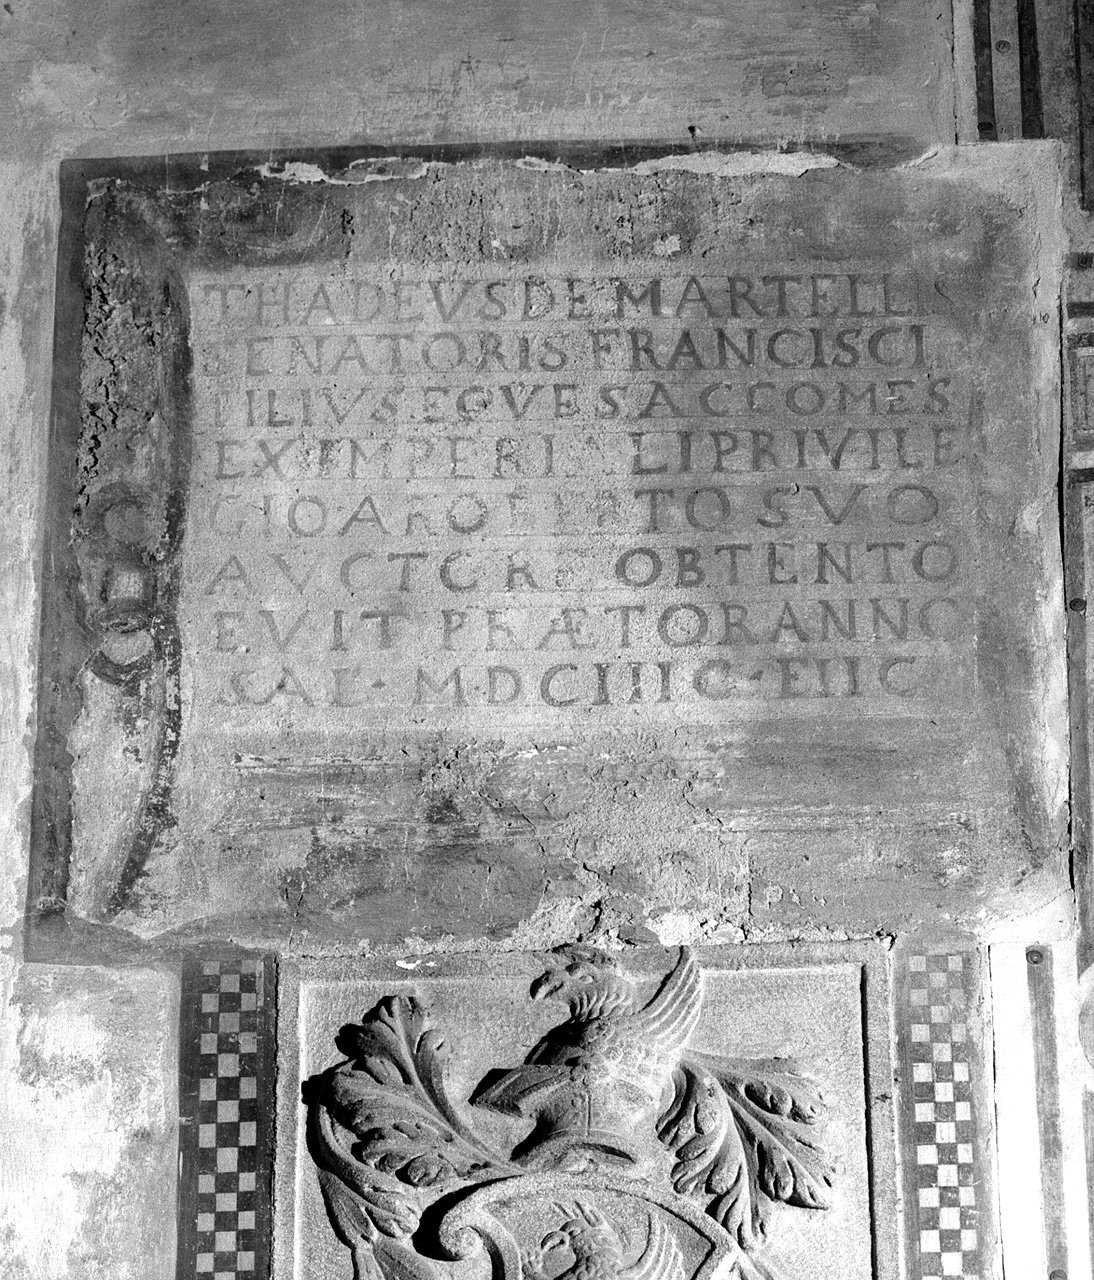 THADEVS DE MARTELLIS
SENATORIS FRANCISCI
FILIVS EQVES AC COMES
EX IMPERIALI PRIVILE
GIO A ROBERTO SVO
AVCTORE OBTENTO
EVIT PRÆTOR ANNO
SAL· M·DCIIII C·EIIC